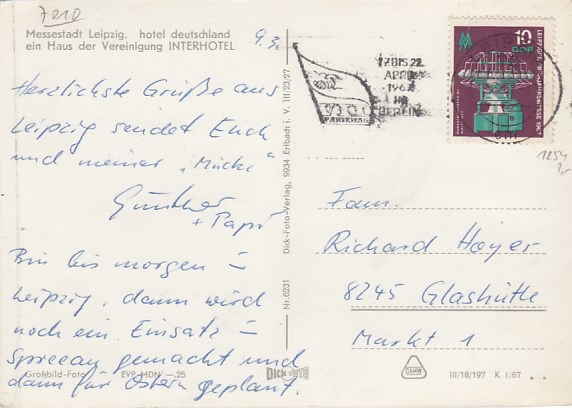 7010
Messestadt Leipzig. hotel deutschland
ein Haus der Vereinigung INTERHOTEL
9.3.
Herzlichste Grüße aus
Leipzig sendet Euch
und meiner „Mücke“
Günther
+ Papi
Bin bis morgen –
Leipzig, dann wird
noch ein Einsatz –
Spreeau gemacht und
dann für Ostern geplant.
Großbild-Foto EVP MDN –.25
Dick-Foto-Verlag, 9934 Erlbach i. V. III/23/27
Nr. 0231
DICK
17.BIS 22.
APRIL
1967
IN
BERLIN
PARTEITAG
10
DDR
1254
Fam.
Richard Hoyer
8245 Glashütte
Markt 1
III/18/197 K 1/67